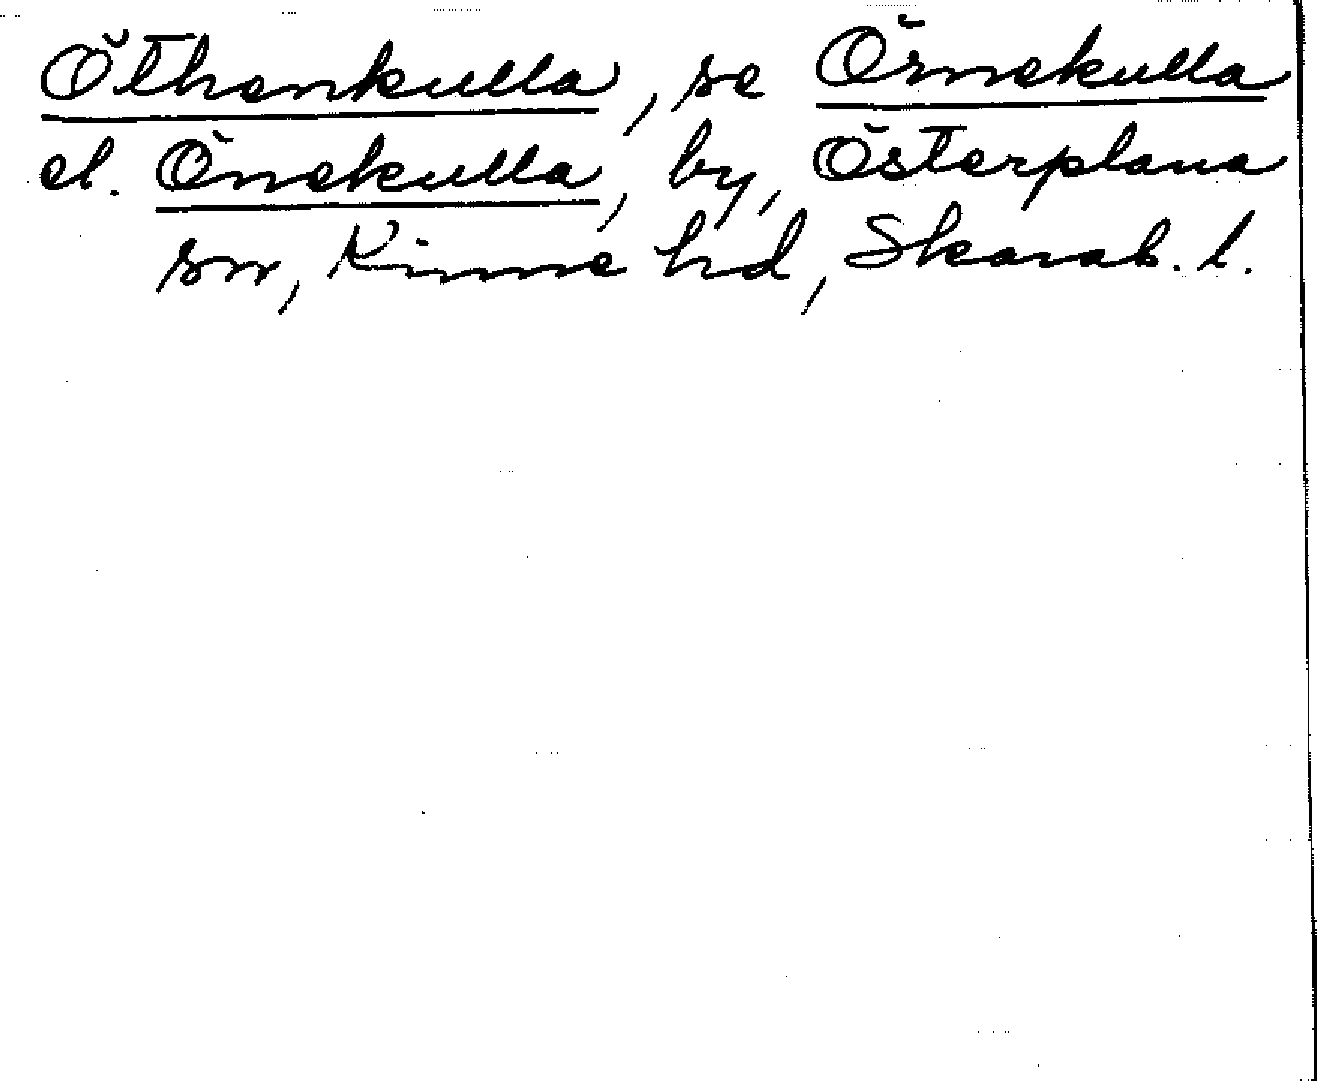 Öthenkulla, se Örnekulla
el. Önekulla, by, Österplana
sn, Kinne hd, Skarab. l.